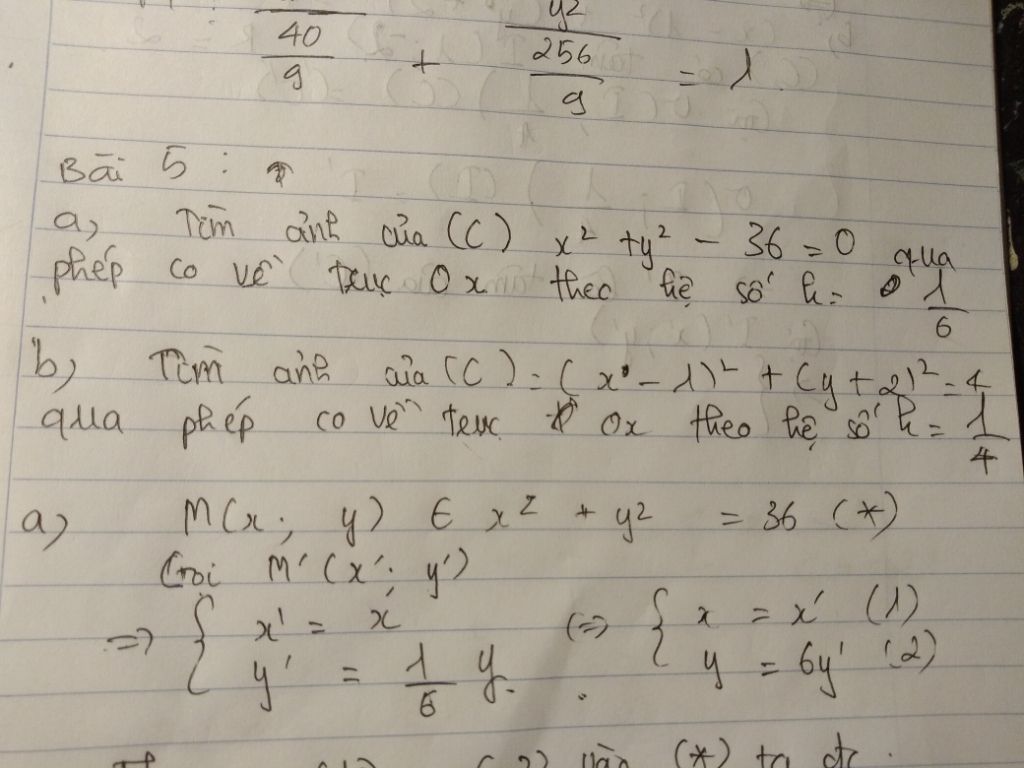 y2
40/9 + 256/9 = 1
Bài 5 :
a) Tìm ảnh của (C) x² + y² - 36 = 0 qua
phép co về trục Ox theo hệ số k = 1/6
b) Tìm ảnh của (C) : (x - 1)² + (y + 2)² = 4
qua phép co về trục Ox theo hệ số k = 1/4
a) M(x; y) ∈ x² + y2 = 36 (*)
Gọi M'(x'; y')
=> { x' = x <=> { x = x' (1)
y' = 1/6 y. y = 6y' (2)
(2) vào (*) ta đc.